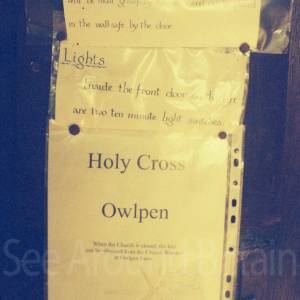 in the wall-safe by the door
Lights
Inside the front door
are two ten minute light switches
Holy Cross
Owlpen
When the Church is closed, the key
can be obtained from the Church Warden
at Owlpen Farm.
See Around Britain